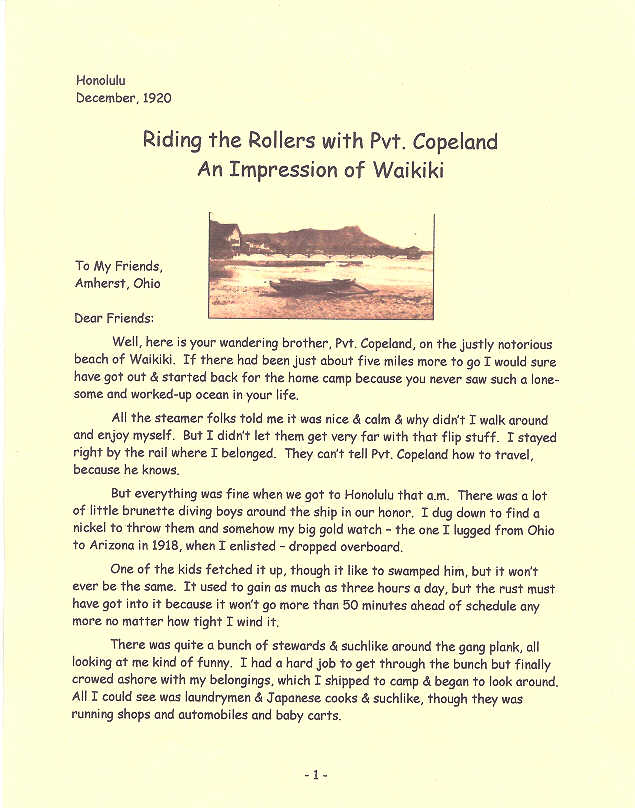 Honolulu
December, 1920
Riding the Rollers with Pvt. Copeland
An Impression of Waikiki
To My Friends,
Amherst, Ohio
Dear Friends:
Well, here is your wandering brother, Pvt. Copeland, on the justly notorious
beach of Waikiki. If there had been just about five miles more to go I would sure
have got out & started back for the home camp because you never saw such a lone-
some and worked-up ocean in your life.
All the steamer folks told me it was nice & calm & why didn't I walk around
and enjoy myself. But I didn't let them get very far with that flip stuff. I stayed
right by the rail where I belonged. They can't tell Pvt. Copeland how to travel,
because he knows.
But everything was fine when we got to Honolulu that a.m. There was a lot
of little brunette diving boys around the ship in our honor. I dug down to find a
nickel to throw them and somehow my big gold watch – the one I lugged from Ohio
to Arizona in 1918, when I enlisted – dropped overboard.
One of the kids fetched it up, though it like to swamped him, but it won't
ever be the same. It used to gain as much as three hours a day, but the rust must
have got into it because it won't go more than 50 minutes ahead of schedule any
more no matter how tight I wind it.
There was quite a bunch of stewards & suchlike around the gang plank, all
looking at me kind of funny. I had a hard job to get through the bunch but finally
crowed ashore with my belongings, which I shipped to camp & began to look around.
All I could see was laundrymen & Japanese cooks & suchlike, though they was
running shops and automobiles and baby carts.
- 1 -